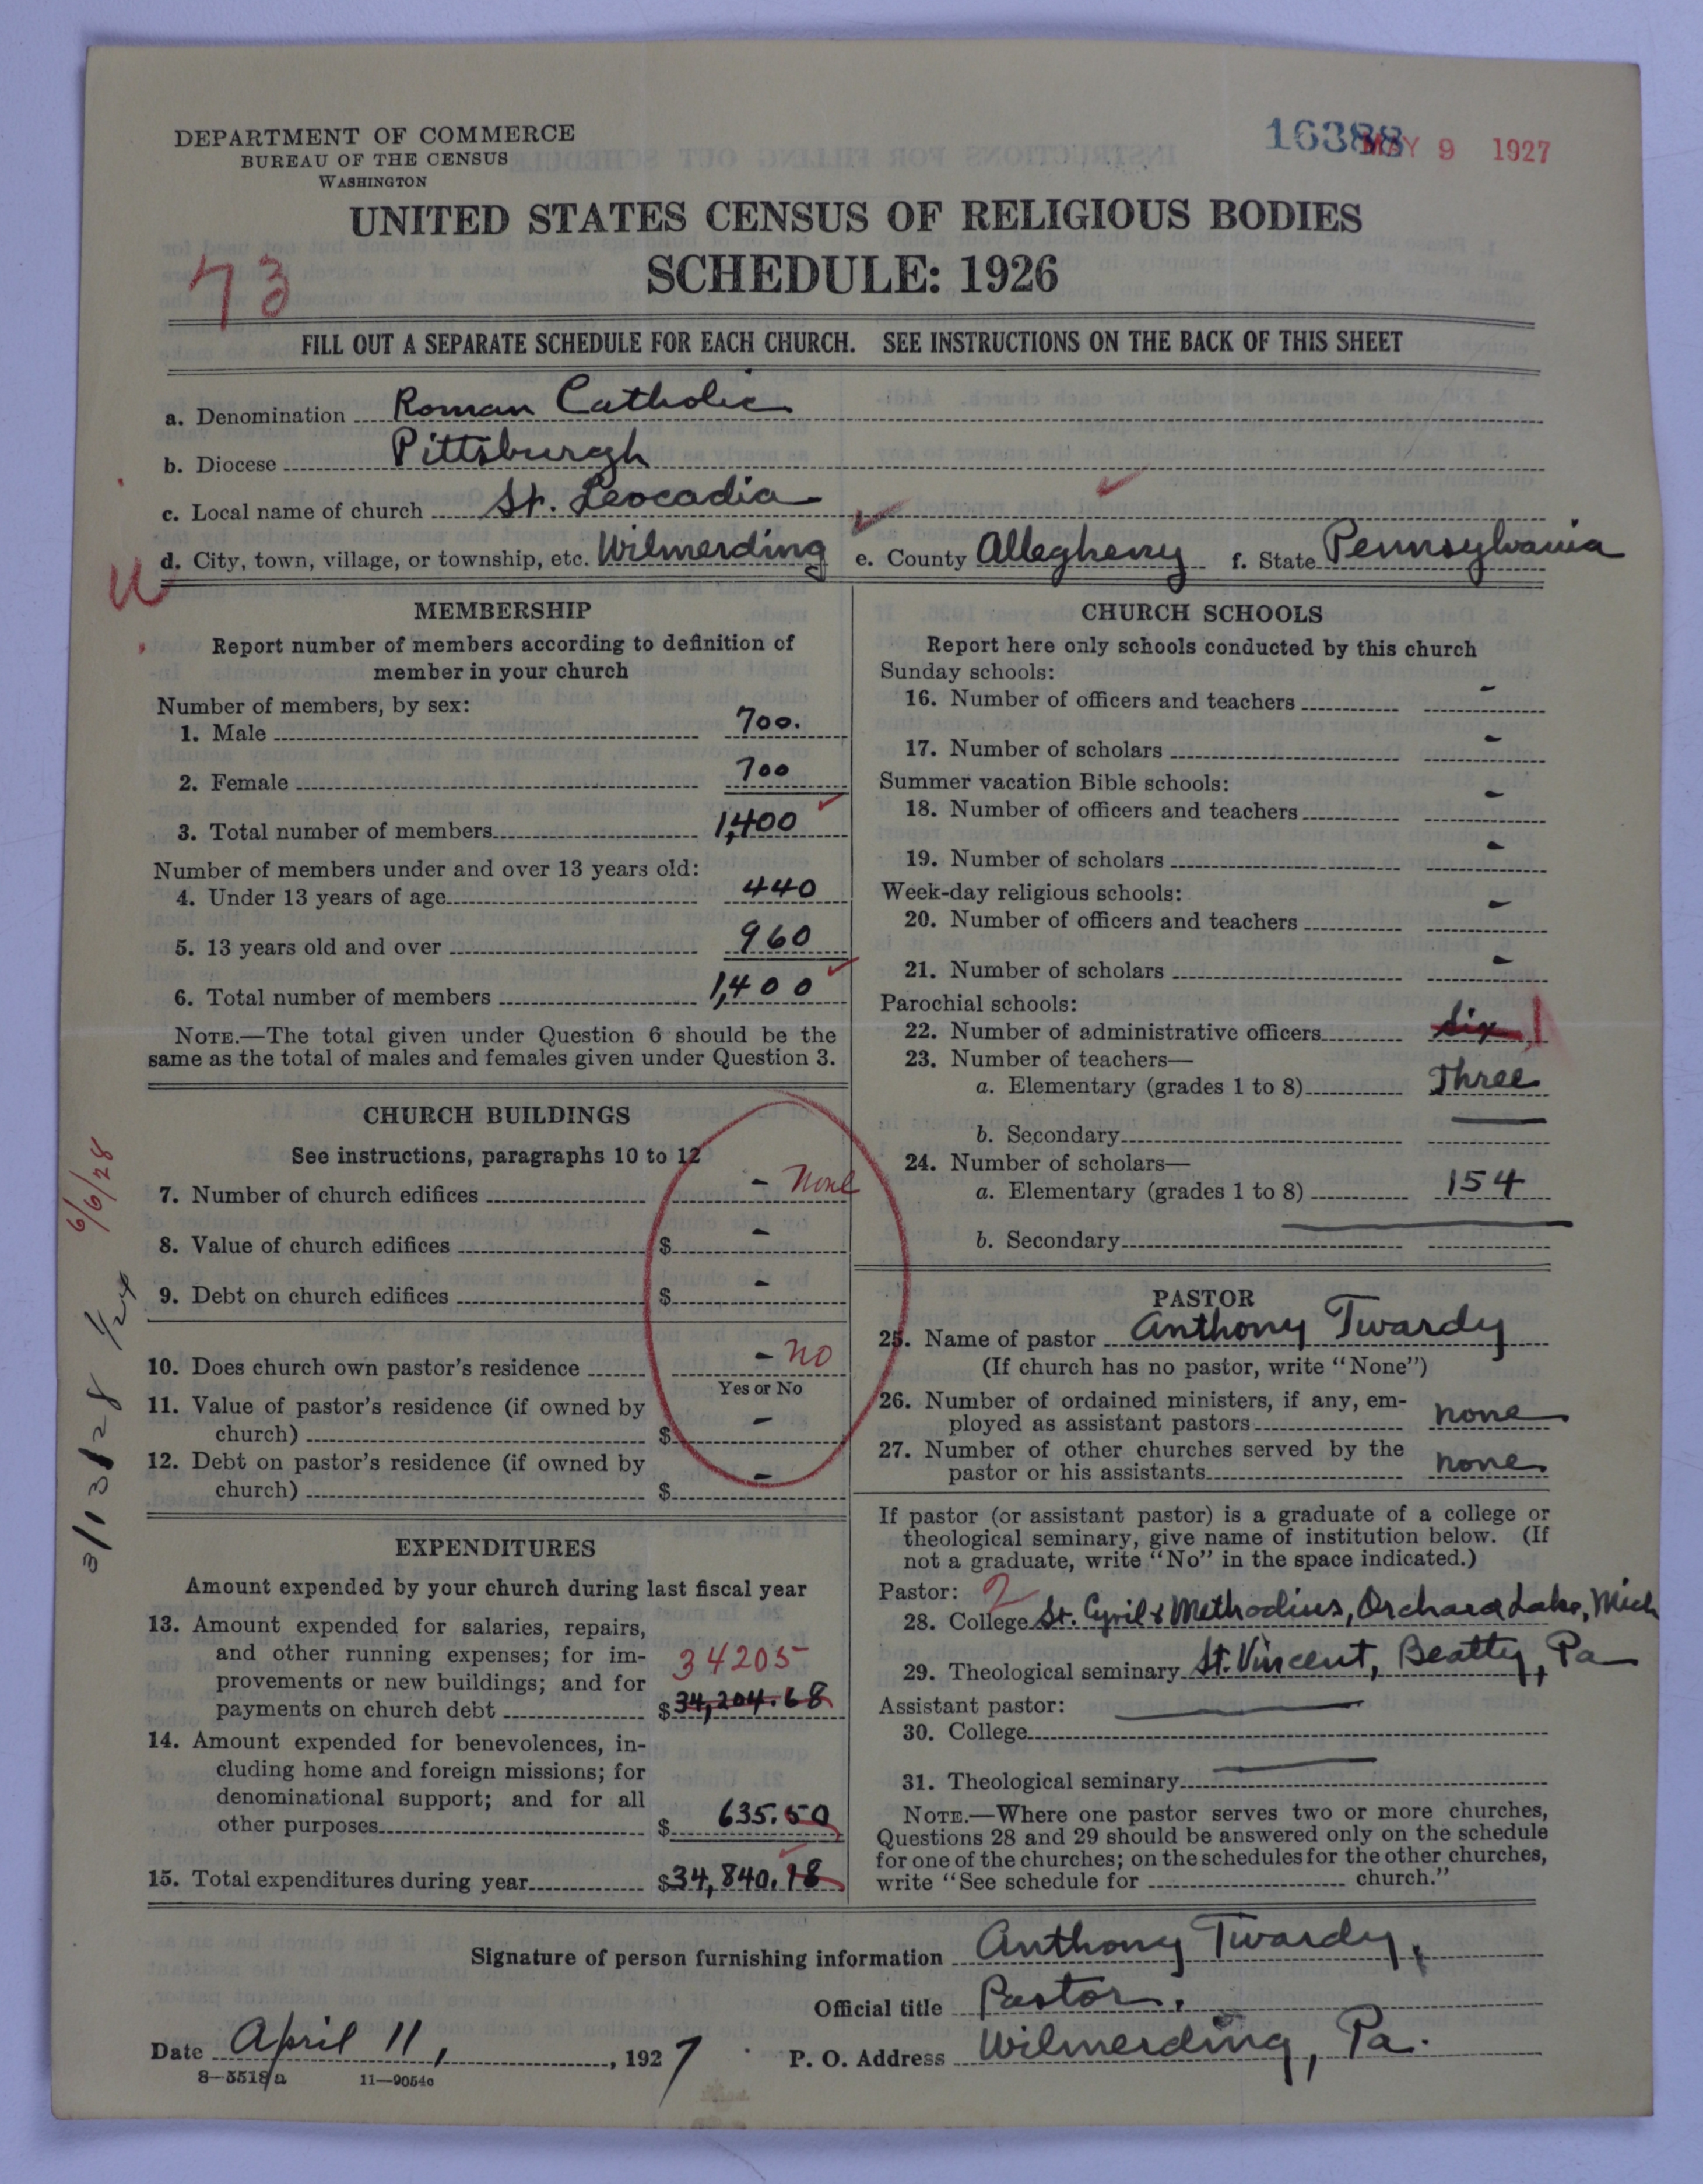 DEPARTMENT OF COMMERCE
BUREAU OF THE CENSUS
WASHINGTON
16388 MAY 9 1927
UNITED STATES CENSUS OF RELIGIOUS BODIES
SCHEDULE: 1926
73
FILL OUT A SEPARATE SCHEDULE FOR EACH CHURCH. SEE INSTRUCTIONS ON THE BACK OF THIS SHEET
a. Denomination Roman Catholic
b. Diocese Pittsburgh
c. Local name of church St. Leocadia
d. City, town, village, or township, etc. Wilmerding e. County Allegheny f. State Pennsylvania
U
MEMBERSHIP
Report number of members according to definition of
member in your church
Number of members, by sex:
1. Male 700.
2. Female 700
3. Total number of members 1,400
Number of members under and over 13 years old:
4. Under 13 years of age 440
5. 13 years old and over 960
6. Total number of members 1,400
NOTE.—The total given under Question 6 should be the
same as the total of males and females given under Question 3.
CHURCH BUILDINGS
See instructions, paragraphs 10 to 12
7. Number of church edifices - None
8. Value of church edifices $ -
9. Debt on church edifices $ -
10. Does church own pastor's residence - No
Yes or No
11. Value of pastor's residence (if owned by
church) $ -
12. Debt on pastor's residence (if owned by
church) $ -
6/6/28
3/13/28
EXPENDITURES
Amount expended by your church during last fiscal year
13. Amount expended for salaries, repairs,
and other running expenses; for im-
provements or new buildings; and for 34205
payments on church debt $34,204.68
14. Amount expended for benevolences, in-
cluding home and foreign missions; for
denominational support; and for all
other purposes $ 635.50
15. Total expenditures during year $34,840.18
CHURCH SCHOOLS
Report here only schools conducted by this church
Sunday schools:
16. Number of officers and teachers -
17. Number of scholars -
Summer vacation Bible schools:
18. Number of officers and teachers -
19. Number of scholars -
Week-day religious schools:
20. Number of officers and teachers -
21. Number of scholars -
Parochial schools:
22. Number of administrative officers Six 1
23. Number of teachers—
a. Elementary (grades 1 to 8) Three
b. Secondary
24. Number of scholars—
a. Elementary (grades 1 to 8) 154
b. Secondary
PASTOR
25. Name of pastor Anthony Twardy
(If church has no pastor, write "None")
26. Number of ordained ministers, if any, em-
ployed as assistant pastors none
27. Number of other churches served by the
pastor or his assistants none
If pastor (or assistant pastor) is a graduate of a college or
theological seminary, give name of institution below. (If
not a graduate, write "No" in the space indicated.)
Pastor: 2
28. College St. Cyril & Methodius, Orchard Lake, Mich
29. Theological seminary St. Vincent, Beatty, Pa
Assistant pastor:
30. College
31. Theological seminary
NOTE.—Where one pastor serves two or more churches,
Questions 28 and 29 should be answered only on the schedule
for one of the churches; on the schedules for the other churches,
write "See schedule for church."
Signature of person furnishing information Anthony Twardy,
Official title Pastor.
Date April 11, , 1927 P. O. Address Wilmerding, Pa.
8—5518a 11—9054c